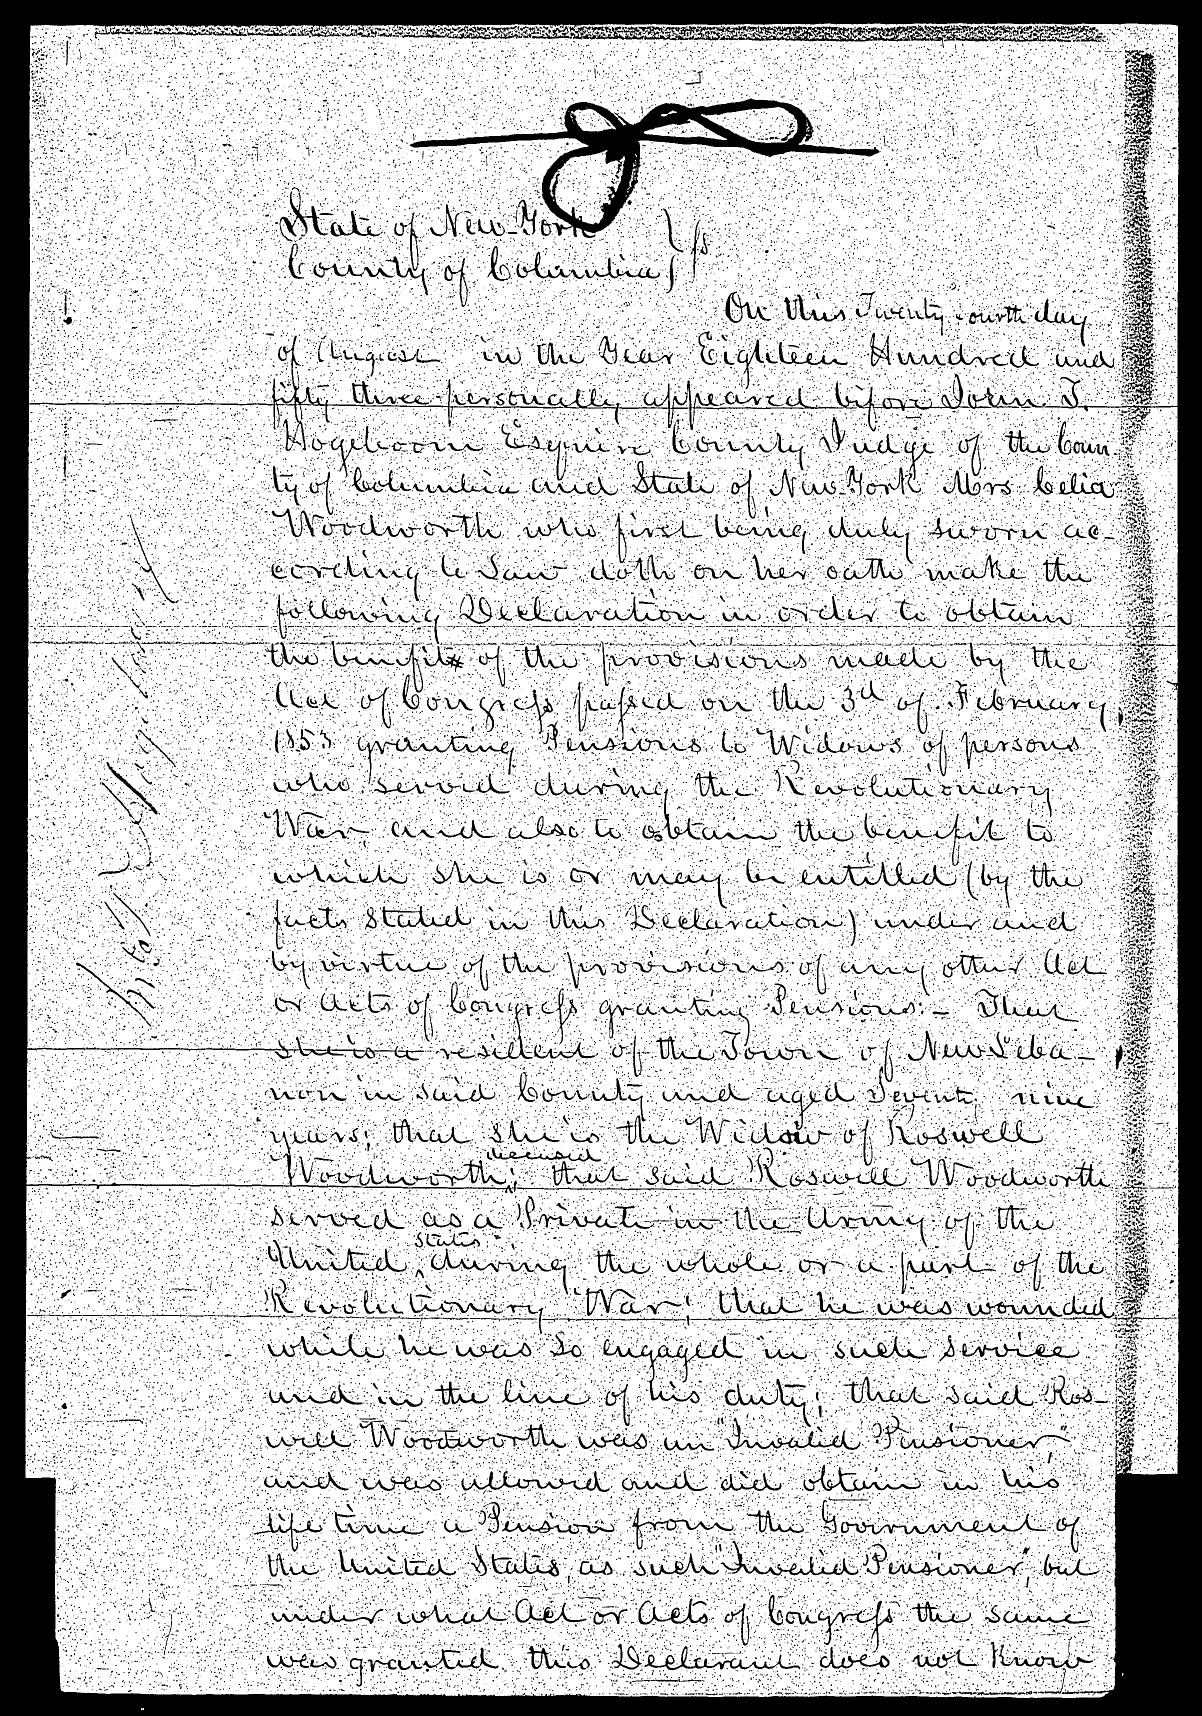 State of New-York } ss
County of Columbia }
On this Twenty fourth day
of August in the Year Eighteen Hundred and
fifty three personally appeared before John T.
Hogeboom Esquire County Judge of the Coun
ty of Columbia and State of New-York Mrs Celia
Woodworth who first being duly sworn ac-
cording to Law doth on her oath make the
following Declaration in order to obtain
the benefit of the provisions made by the
Act of Congress passed on the 3d of February,
1853 granting Pensions to Widows of persons
who served during the Revolutionary
War, and also to obtain the benefit to
which she is or may be entitled (by the
facts stated in this Declaration) under and
by virtue of the provisions of any other Act
or Acts of Congress granting Pensions:- That
she is a resident of the Town of New Leba-
non in said County and aged Seventy nine
years; that she is the Widow of Roswell
Woodworth, deceased; that said Roswell Woodworth
served as a Private in the Army of the
United States during the whole or a part of the
Revolutionary War; that he was wounded
while he was so engaged in such service
and in the line of his duty; that said Ros-
well Woodworth was an "Invalid Pensioner,"
and was allowed and did obtain in his
life time a Pension from the Government of
the United States, as such "Invalid Pensioner", but
under what Act or Acts of Congress the same
was granted this Declarant does not Know